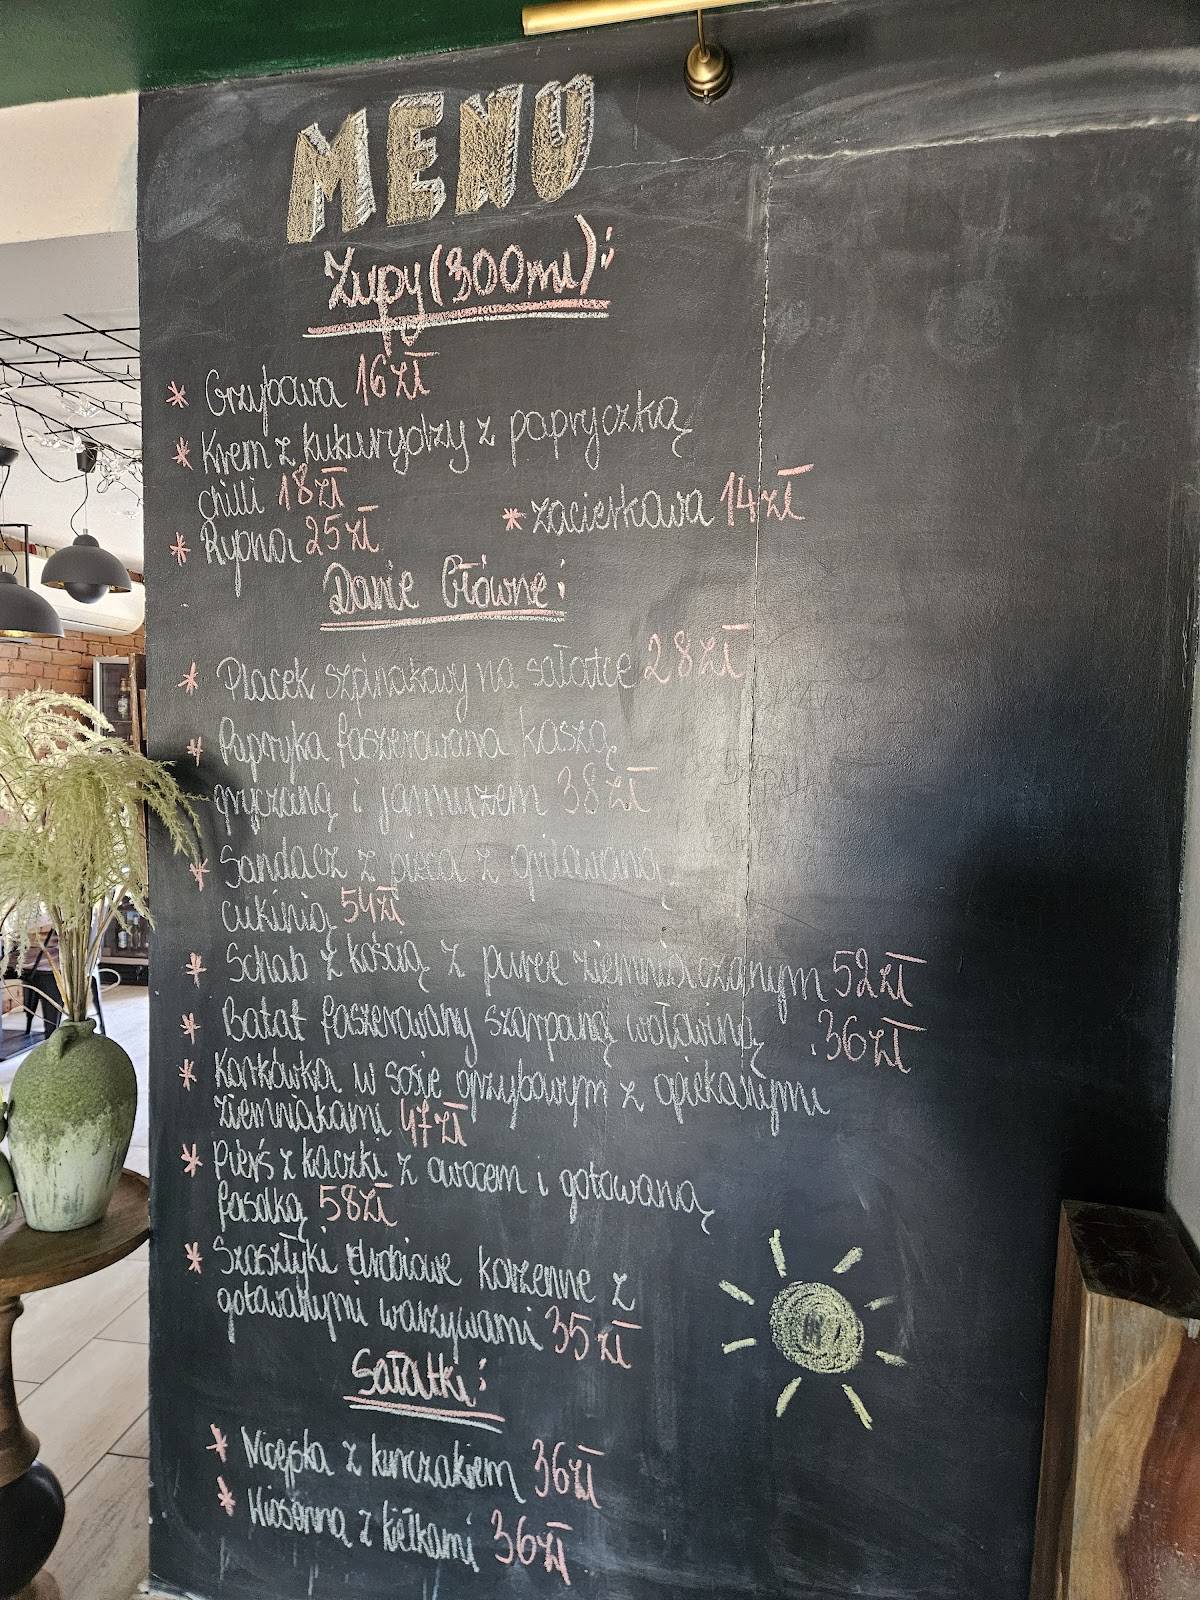 MENU
Zupy (300ml):
* Grzybowa 16zł
* Krem z kukurydzy z papryczką
chilli 18zł
* Rybna 25zł
* zacierkowa 14zł
Danie Główne:
* Placek szpinakowy na sałatce 28zł
* Papryka faszerowana kaszą
gryczaną i jarmużem 38zł
* Sandacz z pieca z grilowaną
cukinią 54zł
* Schab z kością z puree ziemniaczanym 52zł
* Batat faszerowany szarpaną wołowiną 36zł
* Karkówka w sosie grzybowym z opiekanymi
ziemniakami 47zł
* Pierś z kaczki z owocem i gotowaną
fasolką 58zł
* Szaszłyki drobiowe korzenne z
gotowanymi warzywami 35zł
Sałatki:
* Nicejska z kurczakiem 36zł
* Wiosenna z kiełkami 36zł